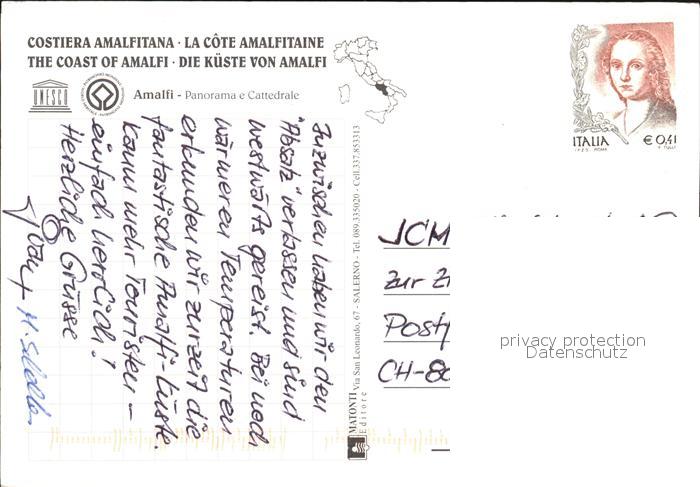 COSTIERA AMALFITANA · LA CÔTE AMALFITAINE
THE COAST OF AMALFI · DIE KÜSTE VON AMALFI
UNESCO
Amalfi - Panorama e Cattedrale
Inzwischen haben wir den
"Absatz" verlassen und sind
westwärts gereist. Bei noch
wärmeren Temperaturen
erkunden wir zurzeit die
fantastische Amalfi-Küste.
Kaum mehr Touristen –
einfach herrlich!
Herzliche Grüsse
MATONTI Via San Leonardo, 67 - SALERNO - Tel. 089.335020 - Cell.337.853313
Editore
ITALIA
€ 0,41
JCM
zur
Post
CH-80
privacy protection
Datenschutz